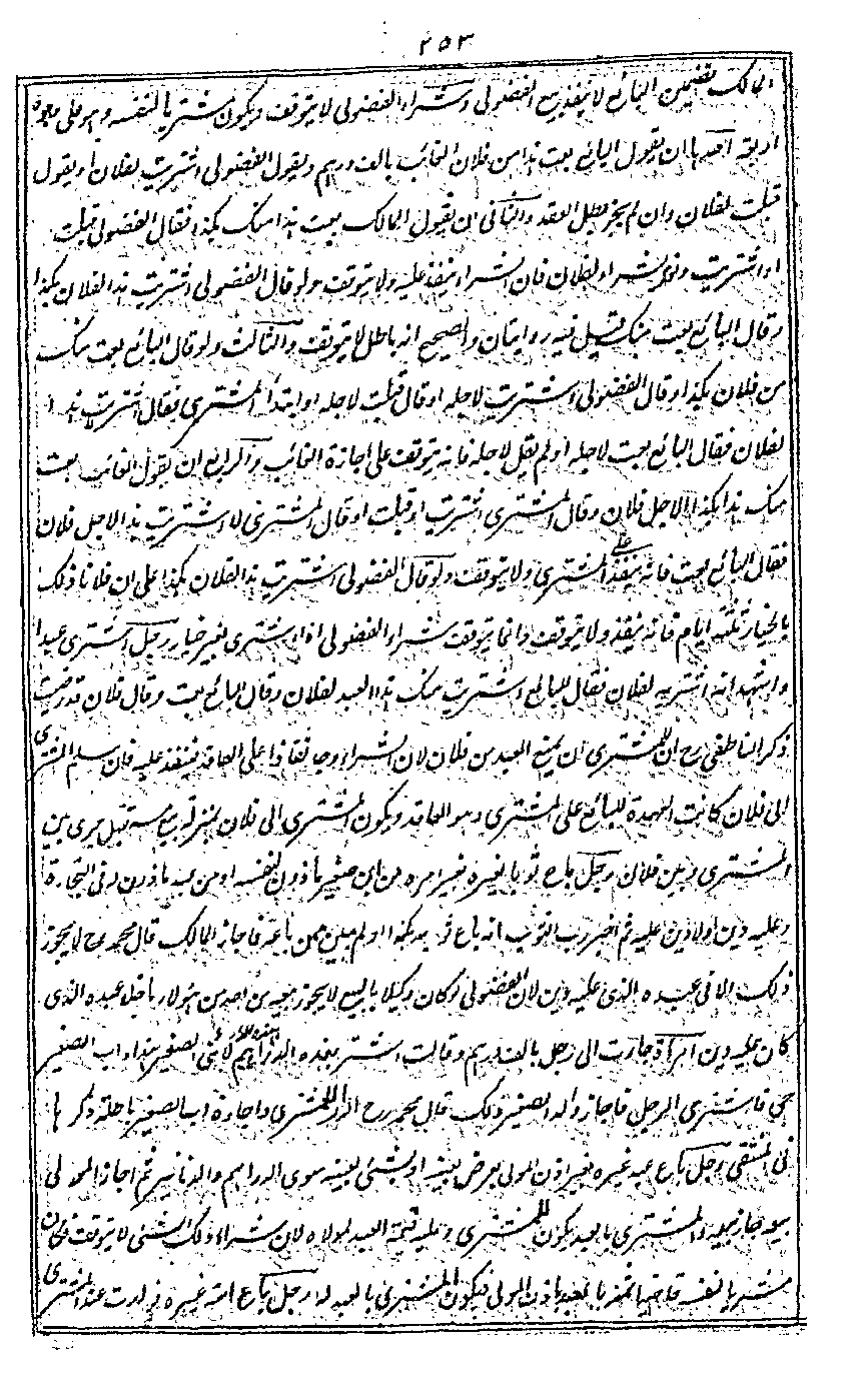 ٢٥٣
المالك تضمين البائع لا ينفذ بيع الفضولى وشراء الفضولى لا يتوقف ويكون مشتريا لنفسه وهو على وجوه
اربعة احدها ان يقول البائع بعت هذا من فلان الغائب بالف درهم ويقول الفضولى اشتريت لفلان او يقول
قبلت لفلان وان لم يجز بطل العقد والثانى ان يقول المالك بعت هذا منك بكذا فقال الفضولى قبلت
او اشتريت ونوى الشراء لفلان فان الشراء ينفذ عليه ولا يتوقف ولو قال الفضولى اشتريت هذا لفلان بكذا
وقال البائع بعت منك قيل فيه روايتان والصحيح انه باطل لا يتوقف والثالث ولو قال البائع بعت منك
من فلان بكذا وقال الفضولى اشتريت لاجله او قال قبلت لاجله او ابتدأ المشترى فقال اشتريت هذا
لفلان فقال البائع بعت لاجله او لم يقل لاجله فانه يتوقف على اجازة الغائب والرابع ان يقول الغائب بعت
منك هذا بكذا لاجل فلان وقال المشترى اشتريت او قبلت او قال المشترى لا اشتريت هذا لاجل فلان
فقال البائع بعت فانه ينفذ على المشترى ولا يتوقف ولو قال الفضولى اشتريت هذا لفلان بكذا على ان فلانا ذلك
بالخيار ثلثة ايام فانه ينفذ ولا يتوقف وانما يتوقف شراء الفضولى اذا اشترى بغير خيار رجل اشترى عبدا
واشهد انه اشتريه لفلان فقال للبائع اشتريت منك هذا العبد لفلان وقال البائع بعت وقال فلان قد رضيت
ذكر الناطفى رح ان للمشترى ان يمنع العبد من فلان لان الشراء وجد نفاذا على العاقد فينفذ عليه فان سلم المشترى
الى فلان كانت العهدة للبائع على المشترى وهو العاقد ويكون المشترى الى فلان بمنزلة بيع مستقبل جرى بين
المشترى وبين فلان رجل باع ثوبا لغيره بغير امره من ابن صغير ماذون لنفسه او من عبد ماذون له فى التجارة
وعليه دين اولا دين عليه ثم اخبر رب الثوب انه باع ثوبه بكذا ولم يبين ممن باعه فاجاز المالك قال محمد رح لا يجوز
ذلك الا فى عبده الذى عليه دين لان الفضولى لو كان وكيلا بالبيع لا يجوز بيعه من احد من هؤلاء ما خلا عبده الذى
كان عليه دين امرأة جاءت الى رجل بالف درهم وقالت اشتر بهذه الدراهم لابنى الصغير هذا واب الصغير
حى فاشترى الرجل فاجاز والد الصغير ذلك قال محمد رح الدار للمشترى واجازة اب الصغير باطلة ذكرها
فى المنتقى رجل باع عبد غيره بغير اذن المولى بعرض بعينه او بشئ بعينه سوى الدراهم والدنانير ثم اجاز المولى
بيعه جاز بيعه والمشترى بالعبد يكون للمشترى وعليه قيمة العبد لمولاه لان شراء ذلك الشئ لا يتوقف فكان
مشتريا لنفسه قاضيا ثمنه بالعبد باذن المولى فيكون المشترى بالعبد له رجل باع امة غيره فولدت عند المشترى